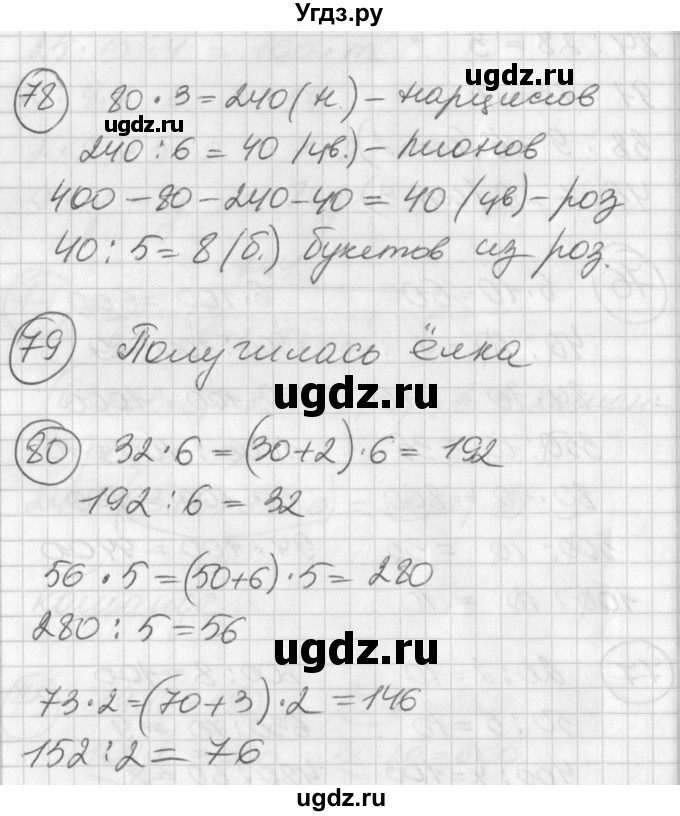 Угдз.ру
78 80 · 3 = 240 (н.) – нарциссов
ugdz.ru
ugdz.ru
240 : 6 = 40 (цв.) – пионов
400 – 80 – 240 – 40 = 40 (цв) – роз
40 : 5 = 8 (б.) букетов из роз.
79 Получилась ёлка
ugdz.ru
80 32 · 6 = (30+2) · 6 = 192
192 : 6 = 32
56 · 5 = (50+6) · 5 = 280
280 : 5 = 56
ugdz.ru
73 · 2 = (70+3) · 2 = 146
152 : 2 = 76
ugdz.ru